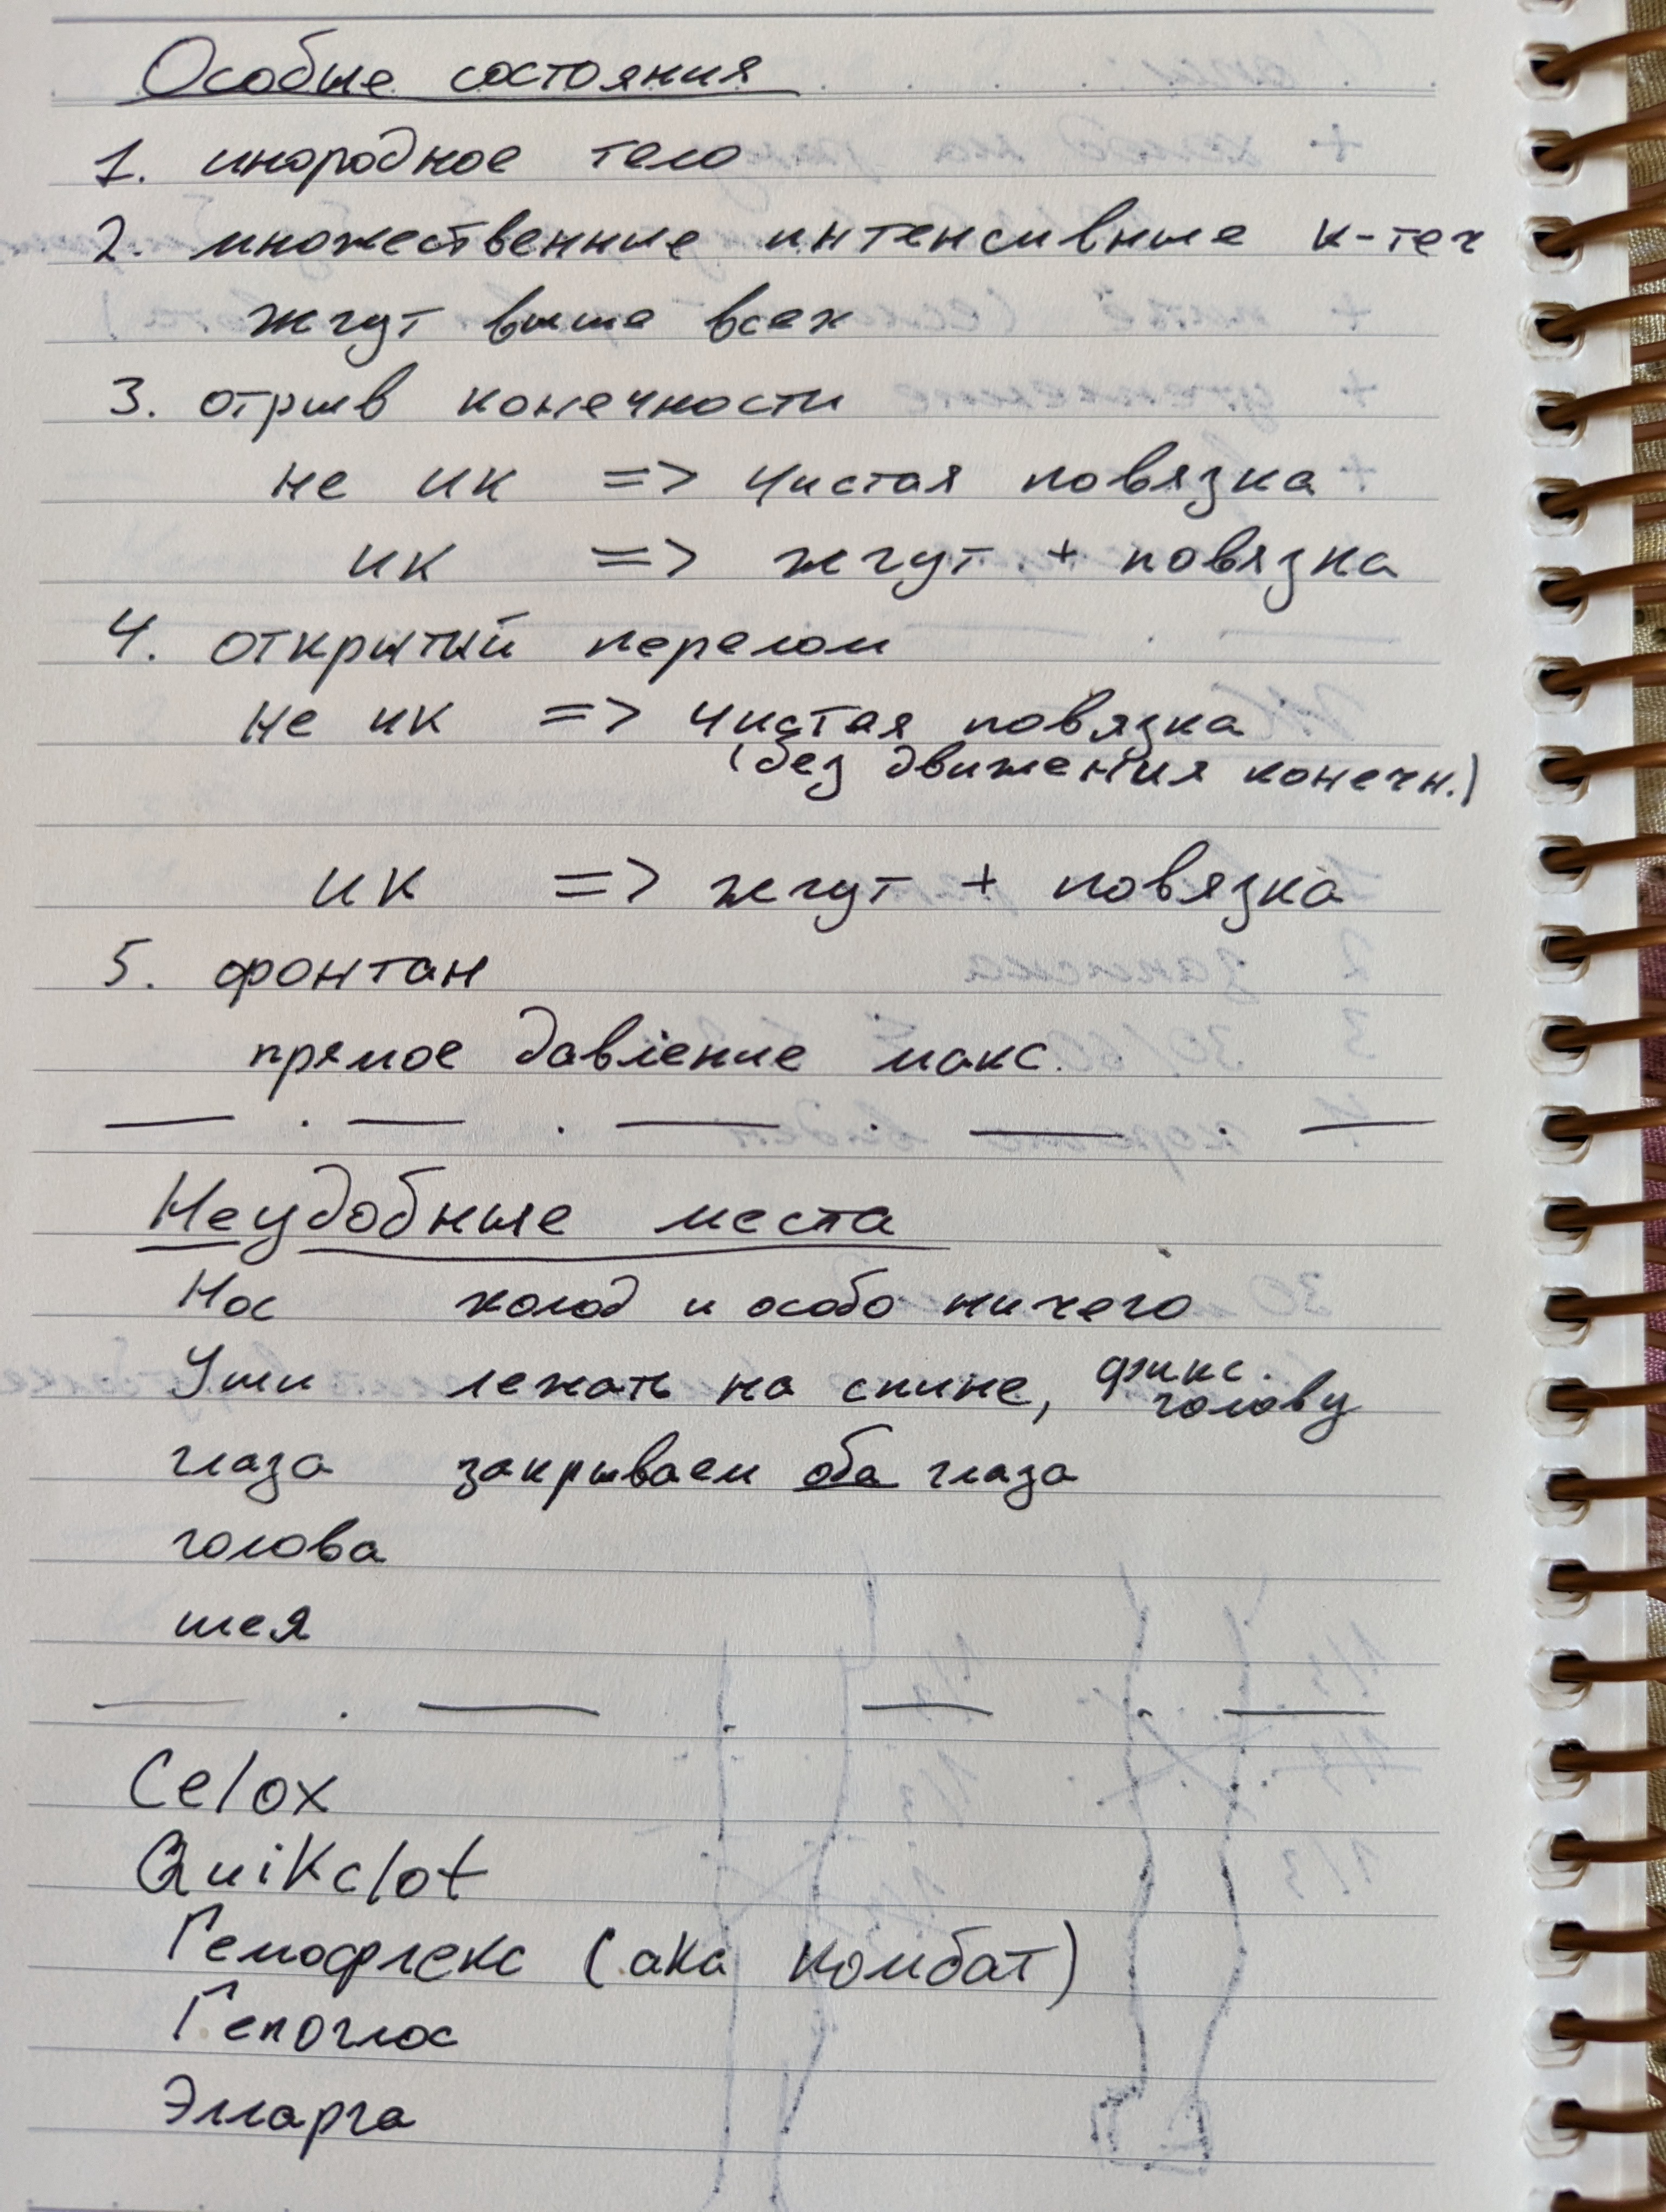 Особые состояния
1. инородное тело
2. множественные интенсивные к-теч
жгут выше всех
3. отрыв конечности
не ИК => чистая повязка
ИК => жгут + повязка
4. открытый перелом
не ИК => чистая повязка
(без движения конечн.)
ИК => жгут + повязка
5. фонтан
прямое давление макс.
Неудобные места
Нос холод и особо ничего
Уши лежать на спине, фикс. голову
глаза закрываем оба глаза
голова
шея
Celox
Quikclot
Гемофлекс (aka комбат)
Гепоглос
Эмларга